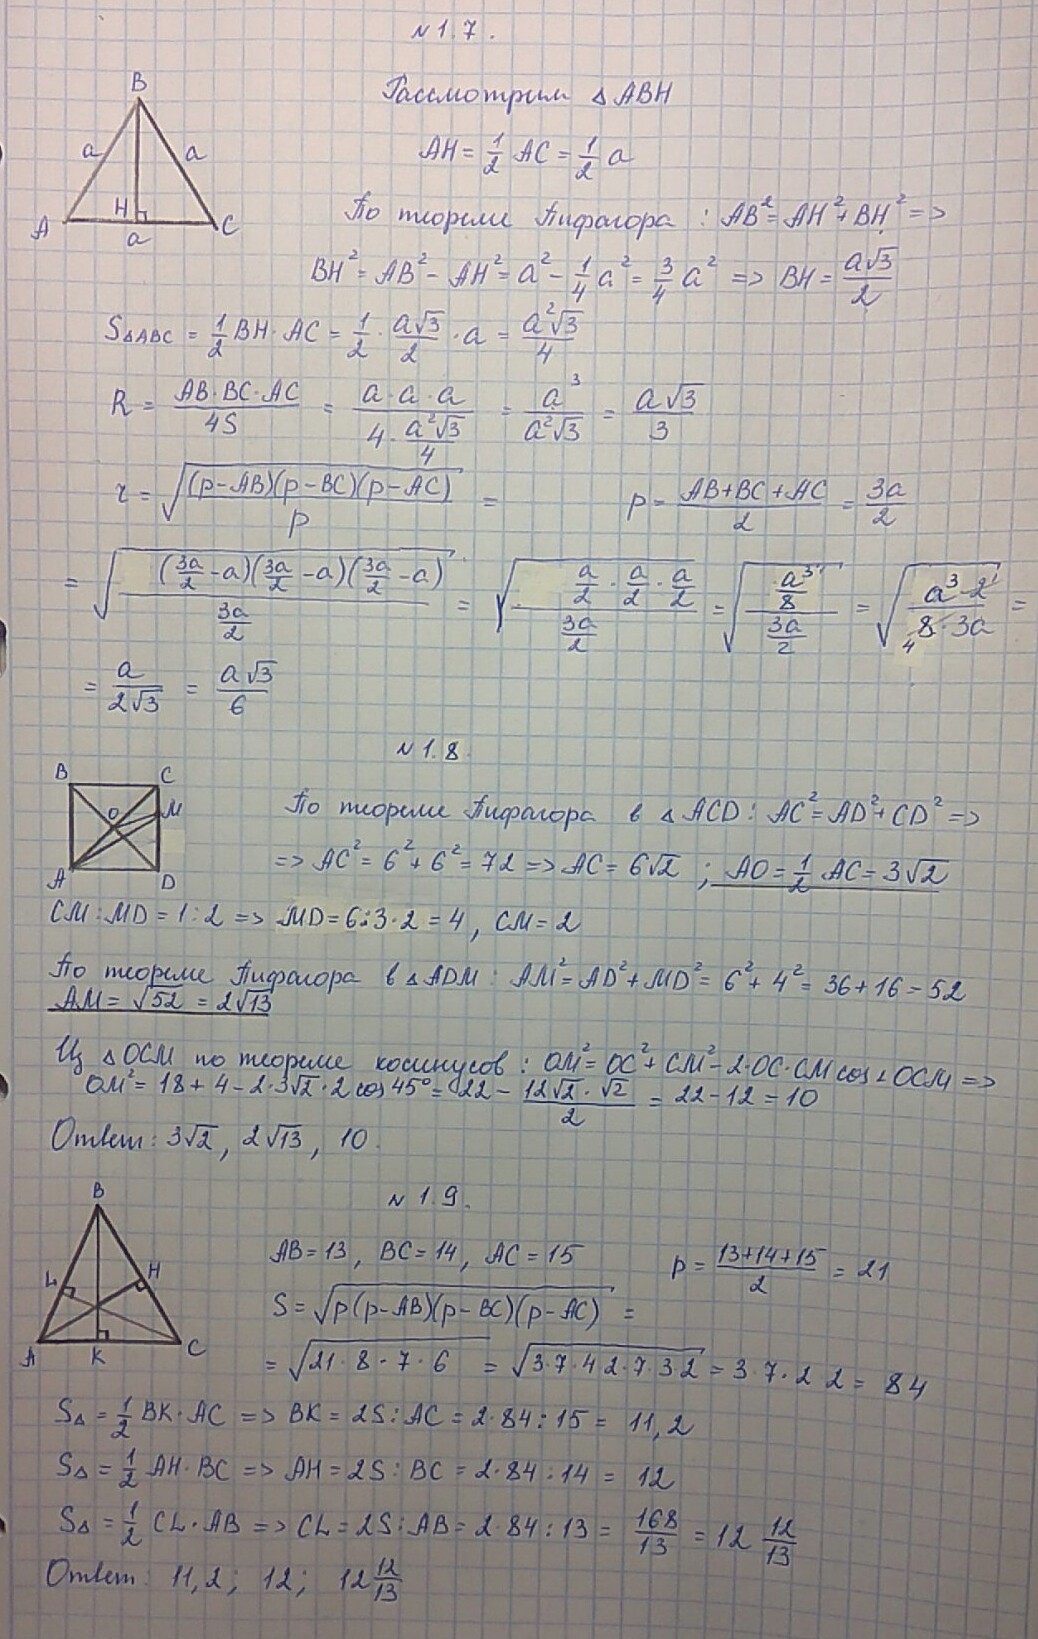 № 1.7.
B
a a
A H C
a
Рассмотрим △ABH
AH = 1/2 AC = 1/2 a
По теореме Пифагора : AB² = AH² + BH² =>
BH² = AB² - AH² = a² - 1/4 a² = 3/4 a² => BH = a√3/2
S△ABC = 1/2 BH · AC = 1/2 · a√3/2 · a = a²√3/4
R = AB·BC·AC/4S = a·a·a/(4·a²√3/4) = a³/a²√3 = a√3/3
r = √((p-AB)(p-BC)(p-AC)/p) =
p = (AB+BC+AC)/2 = 3a/2
= √((3a/2 - a)(3a/2 - a)(3a/2 - a)/(3a/2)) = √((a/2 · a/2 · a/2)/(3a/2)) = √((a³/8)/(3a/2)) = √(a³·2¹/(8₄·3a)) =
= a/2√3 = a√3/6
№ 1.8.
B C
O M
A D
По теореме Пифагора в △ACD : AC² = AD² + CD² =>
=> AC² = 6² + 6² = 72 => AC = 6√2 ; AO = 1/2 AC = 3√2
CM : MD = 1 : 2 => MD = 6:3·2 = 4, CM = 2
По теореме Пифагора в △ADM : AM² = AD² + MD² = 6² + 4² = 36 + 16 = 52
AM = √52 = 2√13
Из △OCM по теореме косинусов : OM² = OC² + CM² - 2·OC·CM cos∠OCM =>
OM² = 18 + 4 - 2·3√2·2 cos 45° = 22 - 12√2·√2/2 = 22 - 12 = 10
Ответ: 3√2, 2√13, 10.
№ 1.9.
B
L H
A K C
AB = 13, BC = 14, AC = 15
p = (13+14+15)/2 = 21
S = √(p(p-AB)(p-BC)(p-AC)) =
= √(21·8·7·6) = √(3·7·4·2·7·3·2) = 3·7·2·2 = 84
S△ = 1/2 BK·AC => BK = 2S : AC = 2·84 : 15 = 11,2
S△ = 1/2 AH·BC => AH = 2S : BC = 2·84 : 14 = 12
S△ = 1/2 CL·AB => CL = 2S : AB = 2·84 : 13 = 168/13 = 12 12/13
Ответ: 11,2; 12; 12 12/13